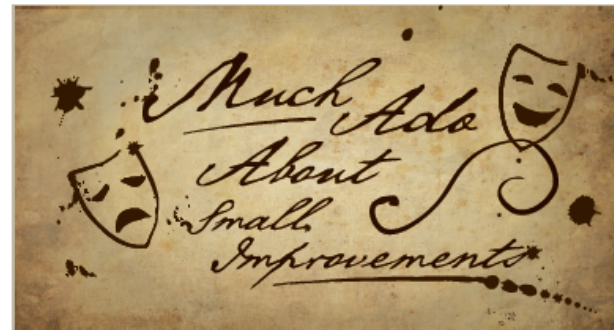 Much
Ado
About
Small
Improvements